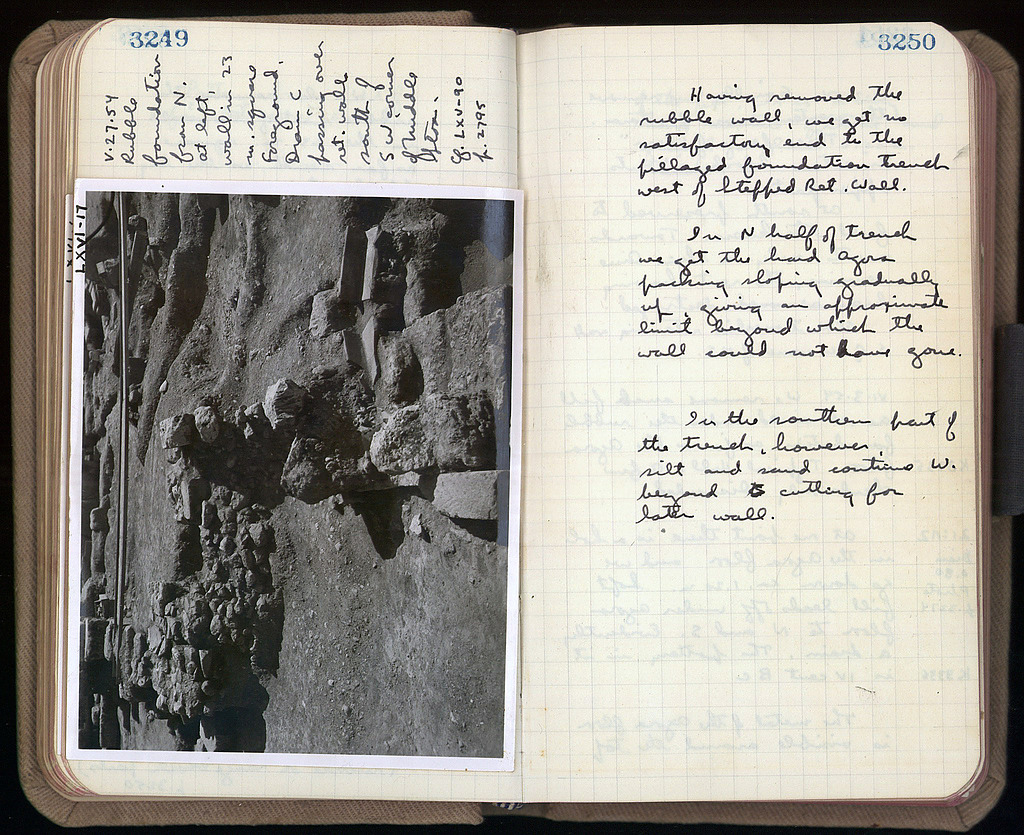 3249
V.27.54
Rubble
foundation
from N.
at left,
wall in 23
m. square
Foreground.
Drain C
passing over
ret. wall
south of
SW corner
of Middle
Stoa.
Cf. LXV-90
p. 2795
LXVI-17
3250
Having removed the
rubble wall, we get no
satisfactory end to the
pillaged foundation trench
west of Stepped Ret. Wall.
In N half of trench
we get the hard Agora
packing sloping gradually
up, giving an approximate
limit beyond which the
wall could not have gone.
In the southern part of
the trench, however,
silt and sand continue W.
beyond cutting for
later wall.